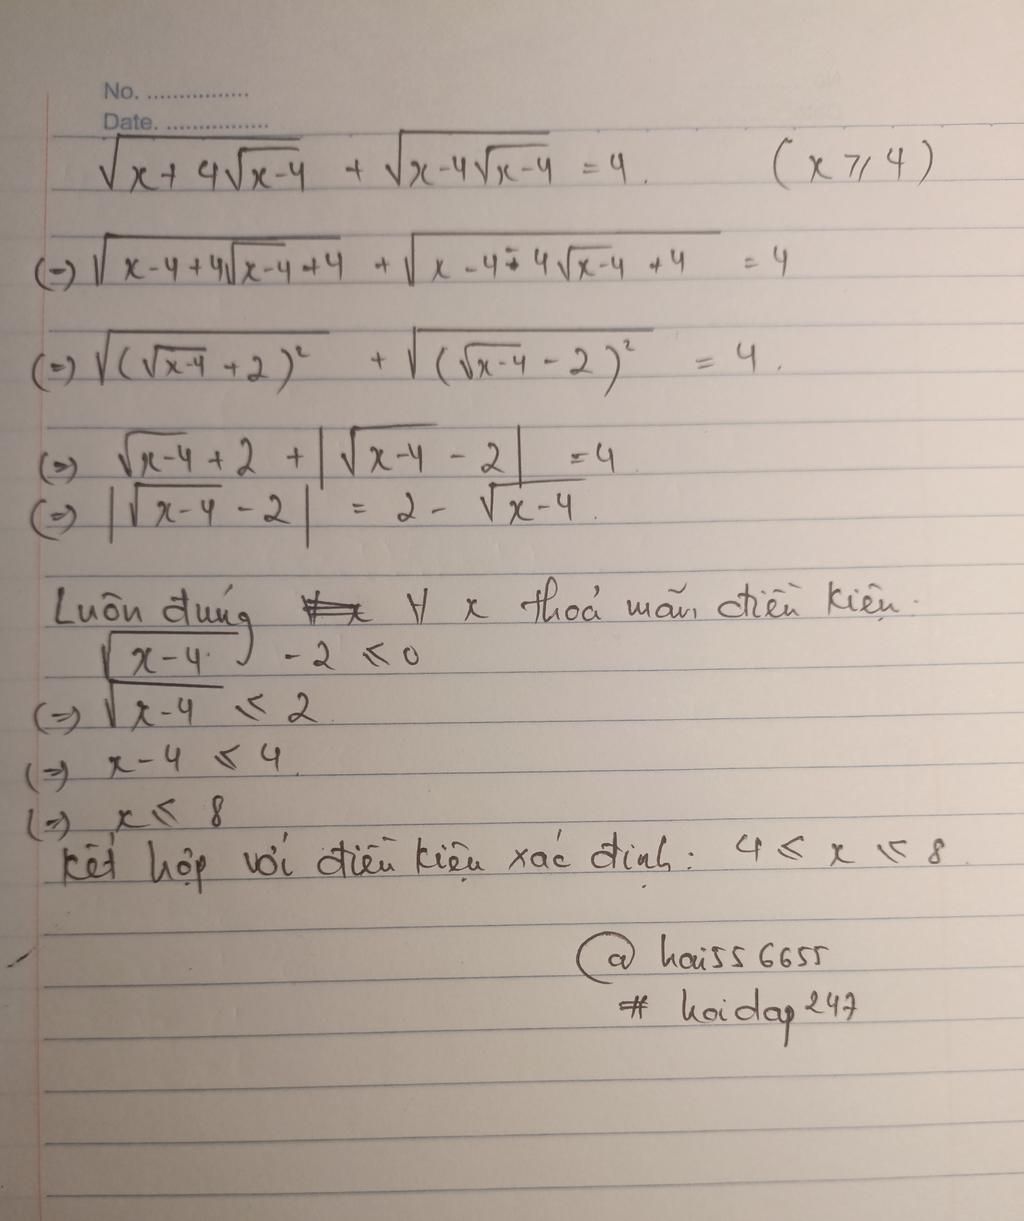 No. ................
Date. ................
√(x+4√(x-4)) + √(x-4√(x-4)) = 4. (x ≥ 4)
(=) √(x-4+4√(x-4)+4) + √(x-4-4√(x-4)+4) = 4
(=) √((√(x-4)+2)²) + √((√(x-4)-2)²) = 4.
(=) √(x-4)+2 + |√(x-4) - 2| = 4
(=) |√(x-4) - 2| = 2 - √(x-4).
Luôn đúng ∀ x thoả mãn điều kiện.
√(x-4) - 2 ≤ 0
(=) √(x-4) ≤ 2
(=) x-4 ≤ 4.
(=) x ≤ 8
Kết hợp với điều kiện xác định: 4 ≤ x ≤ 8.
@ hai556655
# hoidap247